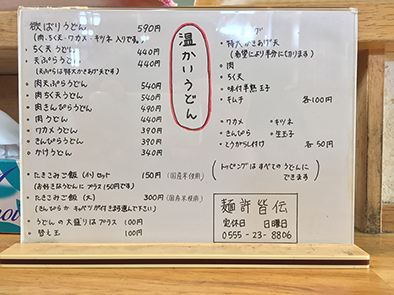 欲ばりうどん 590円
(肉、ちく天・ワカメ・キツネ 入りです。)
ちく天うどん 440円
天ぷらうどん 440円
(天ぷらは特大かきあげです)
肉天ぷらうどん 540円
肉ちく天うどん 540円
肉きんぴらうどん 490円
肉うどん 440円
ワカメうどん 390円
きんぴらうどん 390円
かけうどん 340円
たきこみご飯 (小) 150円 (国産米使用)
(お好きなうどんに プラス 150円です)
たきこみご飯 (大) 300円 (国産米使用)
(きんぴら or キャベツが付き ます選んで下さい)
うどんの大盛りは プラス 100円
替え玉 100円
温かいうどん
グ
特大かきあげ天
(希望により半分に切ります)
肉
ちく天
味付半熟玉子
キムチ 各100円
ワカメ ・ キツネ
きんぴら ・ 生玉子
とうがらし付け 各 50円
(トッピングは すべての うどんに
できます)
麺許皆伝
定休日 日曜日
0555-23-8806